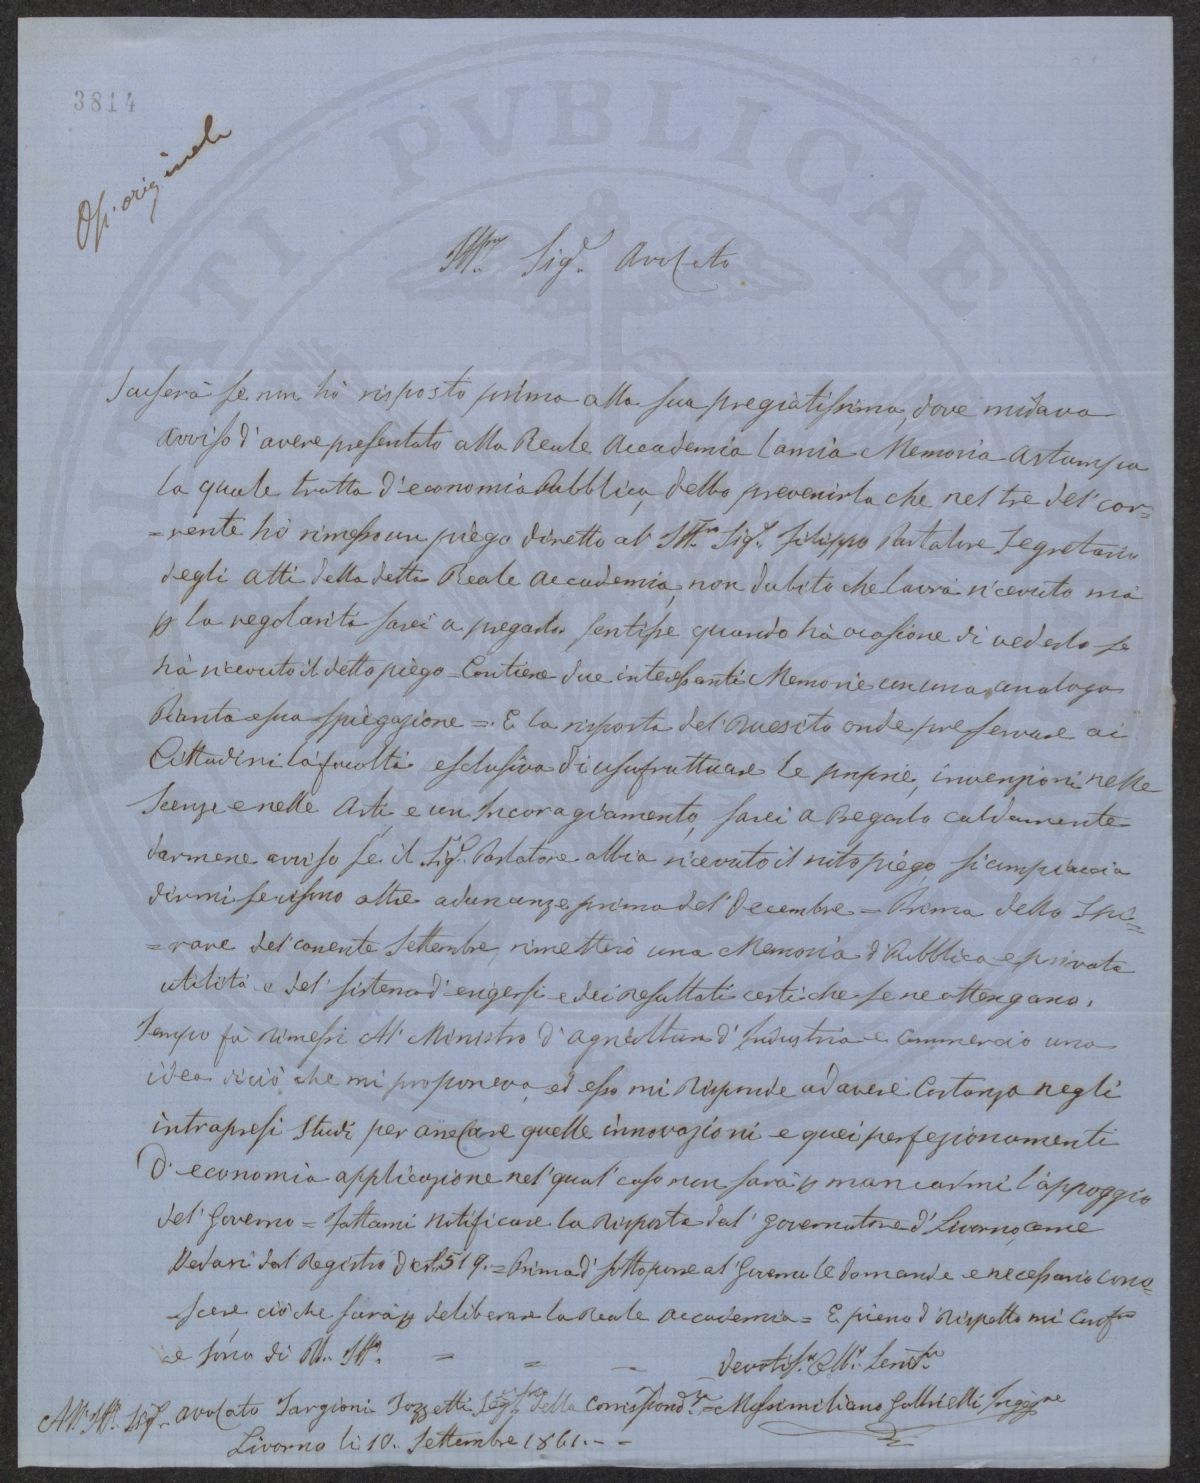 3814
Ill.mo Sig.r Avocato
Scuserà se non hò risposto prima alla sua pregiatissima, dove mi dava
avviso d'avere presentato alla Reale Accademia la mia Memoria a stampa
la quale tratta d'economia Pubblica, debbo prevenirla che nel tre del' cor=
=rente hò rimesso un piègo diretto al' Ill.mo Sig.r Filippo Parlatore Segretario
degli Atti della detta Reale Accademia, non dubito che lavrà ricevuto mà
p la regolarità sarei a pregarla sentisse quando hà ocasione di vederlo se
hà ricevuto il detto piègo = Contiene due interessanti Memorie con una analoga
Pianta e sua spiegazione = E la risposta del' Quesito onde preservare ai
Cittadini la facoltà esclusiva di usufruttuare le proprie, invenzioni nelle
Scenze e nelle Arti, e un Incoragiamento, sarei a Pregarlo caldamente
darmene avviso se il Sig.r Parlatore abbia ricevuto il noto piègo si compiaccia
dirmi se vi sono altre adunanze prima del' Decembre = Prima dello Spi=
=rare del' corrente Settembre, rimetterò una Memoria d'Pubblica e privata
utilità e del' sistema d'erigersi e dei resultati certi che se ne ottengano.
Tempo fà Rimessi Al' Ministro d'agricoltura d'Industria e Commercio una
idea di ciò che mi proponeva, ed esso mi Risponde ad avere Costanza negli
intrapresi Studi per arrecare quelle innovazioni e quei perfezionamenti
D'economia applicazione nel' qual' caso non sarà p mancarmi l'appoggio
del' Governo = fattami Notificare la Risposta dal' Governatore d'Livorno, come
Vedasi dal Registro di 519. = Prima d'sottoporre al' Governo le domande e necessario cono=
=scere ciò che sarà p deliberare la Reale Accademia = E pieno d'Rispetto mi
e sono di
Devotis.o Obb.o Serv.re
All' Ill.mo Sig.r Avocato Targioni Tozzetti Seg.rio della Corrispond.za = Massimiliano Gabbrielli Ingegnere
Livorno li 10. Settembre 1861. - -